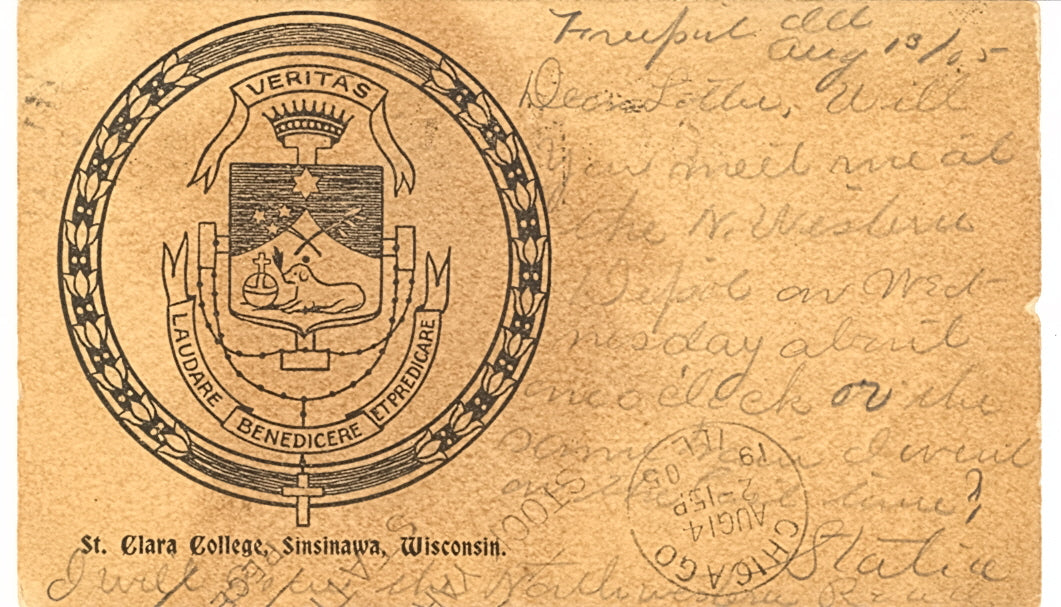 VERITAS
LAUDARE
BENEDICERE
ET PREDICARE
St. Clara College, Sinsinawa, Wisconsin.
Freeport Ill
Aug 13/05
Dear Lottie, Will
you meet me at
the N. Western
Depot on Wed-
nesday about
one o'clock or the
same I went
time?
Station
I will
CHICAGO
AUG 14
2-15P
05
ILL